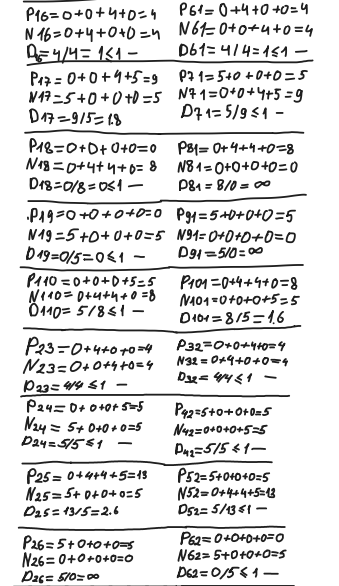 P16=0+0+4+0=4
N16=0+4+0+0=4
D16=4/4=1≤1 —
P61=0+4+0+0=4
N61=0+0+4+0=4
D61=4/4=1≤1 —
P17=0+0+4+5=9
N17=5+0+0+0=5
D17=9/5=1.8
P71=5+0+0+0=5
N71=0+0+4+5=9
D71=5/9≤1 —
P18=0+0+0+0=0
N18=0+4+4+0=8
D18=0/8=0≤1 —
P81=0+4+4+0=8
N81=0+0+0+0=0
D81=8/0=∞
P19=0+0+0+0=0
N19=5+0+0+0=5
D19=0/5=0≤1 —
P91=5+0+0+0=5
N91=0+0+0+0=0
D91=5/0=∞
P110=0+0+0+5=5
N110=0+4+4+0=8
D110=5/8≤1 —
P101=0+4+4+0=8
N101=0+0+0+5=5
D101=8/5=1.6
P23=0+4+0+0=4
N23=0+0+4+0=4
D23=4/4≤1 —
P32=0+0+4+0=4
N32=0+4+0+0=4
D32=4/4≤1 —
P24=0+0+0+5=5
N24=5+0+0+0=5
D24=5/5≤1 —
P42=5+0+0+0=5
N42=0+0+0+5=5
D42=5/5≤1 —
P25=0+4+4+5=13
N25=5+0+0+0=5
D25=13/5=2.6
P52=5+0+0+0=5
N52=0+4+4+5=13
D52=5/13≤1 —
P26=5+0+0+0=5
N26=0+0+0+0=0
D26=5/0=∞
P62=0+0+0+0=0
N62=5+0+0+0=5
D62=0/5≤1 —